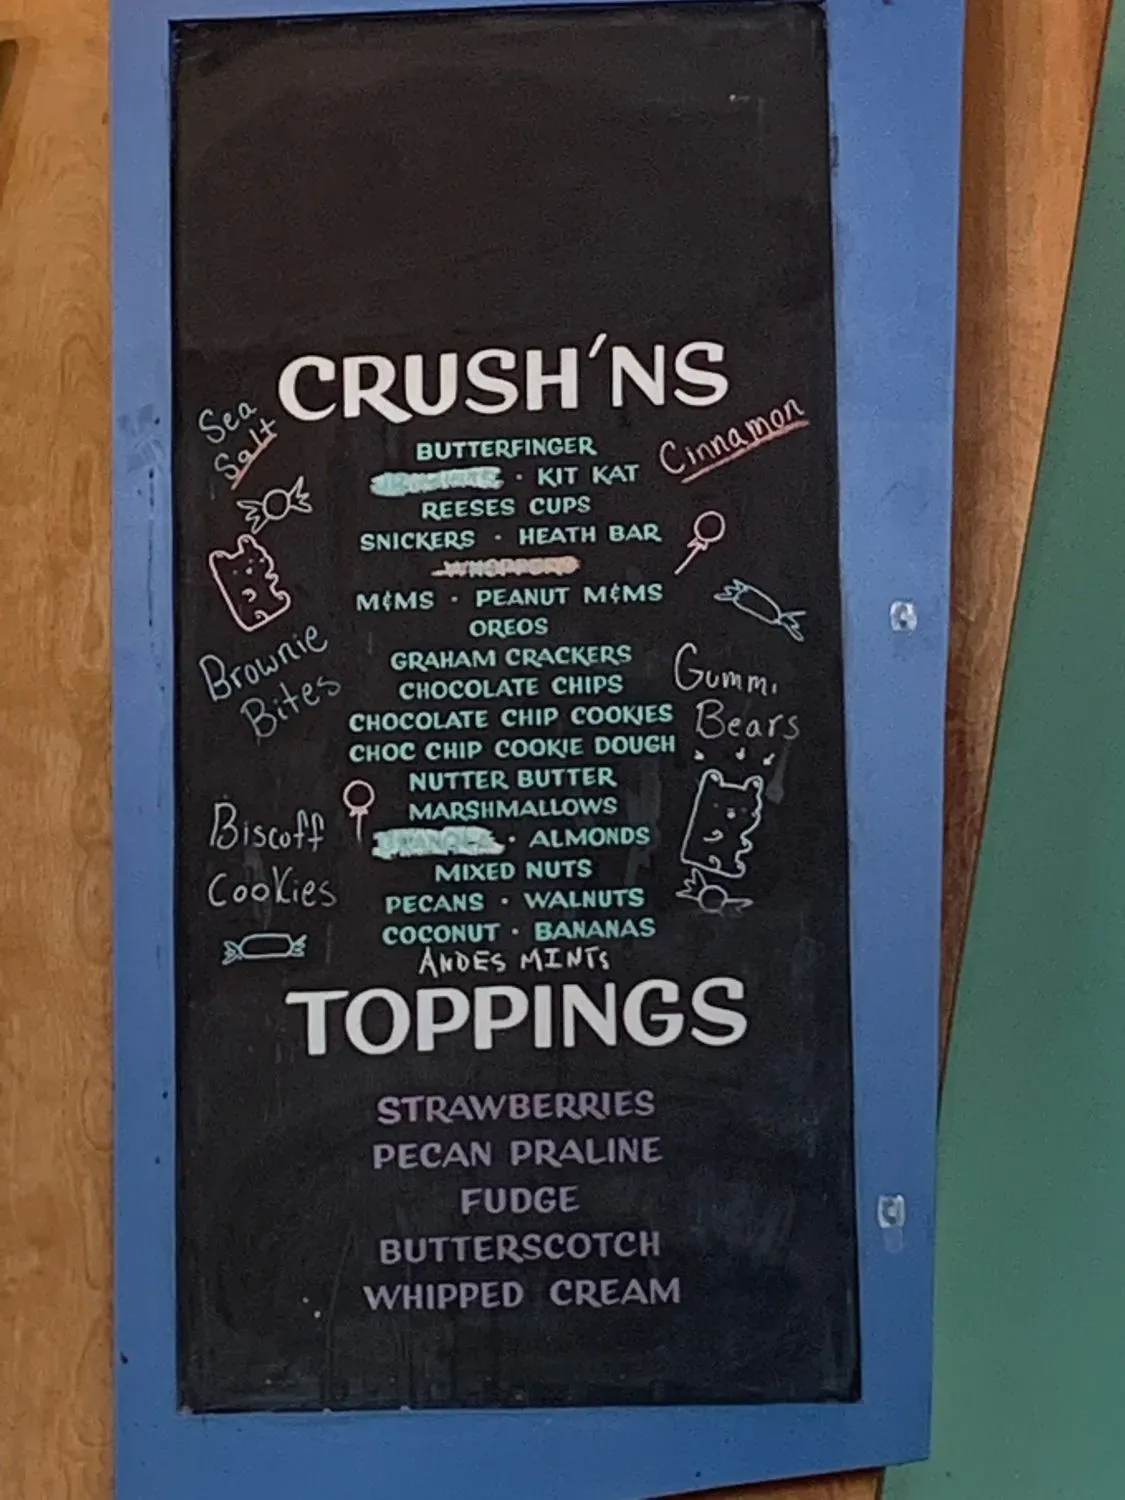 CRUSH'NS
Sea
Salt
Cinnamon
BUTTERFINGER
· KIT KAT
REESES CUPS
SNICKERS · HEATH BAR
WHOPPERS
M&MS · PEANUT M&MS
OREOS
GRAHAM CRACKERS
CHOCOLATE CHIPS
CHOCOLATE CHIP COOKIES
CHOC CHIP COOKIE DOUGH
NUTTER BUTTER
MARSHMALLOWS
GRANOLA · ALMONDS
MIXED NUTS
PECANS · WALNUTS
COCONUT · BANANAS
ANDES MINTS
Brownie
Bites
Biscoff
Cookies
Gummi
Bears
TOPPINGS
STRAWBERRIES
PECAN PRALINE
FUDGE
BUTTERSCOTCH
WHIPPED CREAM